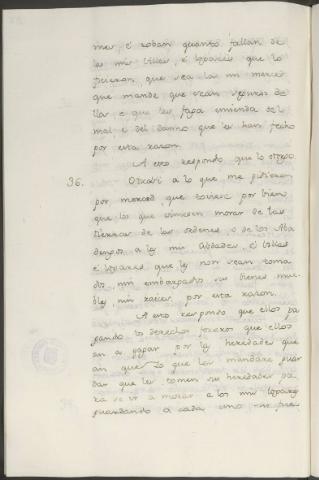 mes, é roban quanto fallan de
las mis Villas, é logares que lo
ficieron, que sea la mi merced
que mande que sean seguros de
llos e que les faga emienda del
mal é del danno que les han fecho
por esta razon.
A esto respondo que lo otorgo.
36. Otrosi à lo que me pidieron
por merced que toviese por bien
que los que vinieren morar de las
tierras de las ordenes, o de los Aba
dengos, à las mis Cibdades, é Villas
é logares que les non sean toma
dos, nin embargados sus bienes mue
bles, nin raices, por esta razon.
A esto respondo que ellos pa
gando los derechos foreros que ellos
an à pagar por las heredades que
an que lo que les mandare guar
dar que les tomen sus heredades pa
ra se ir a morar a los mis logares
guardando à cada uno sus fue